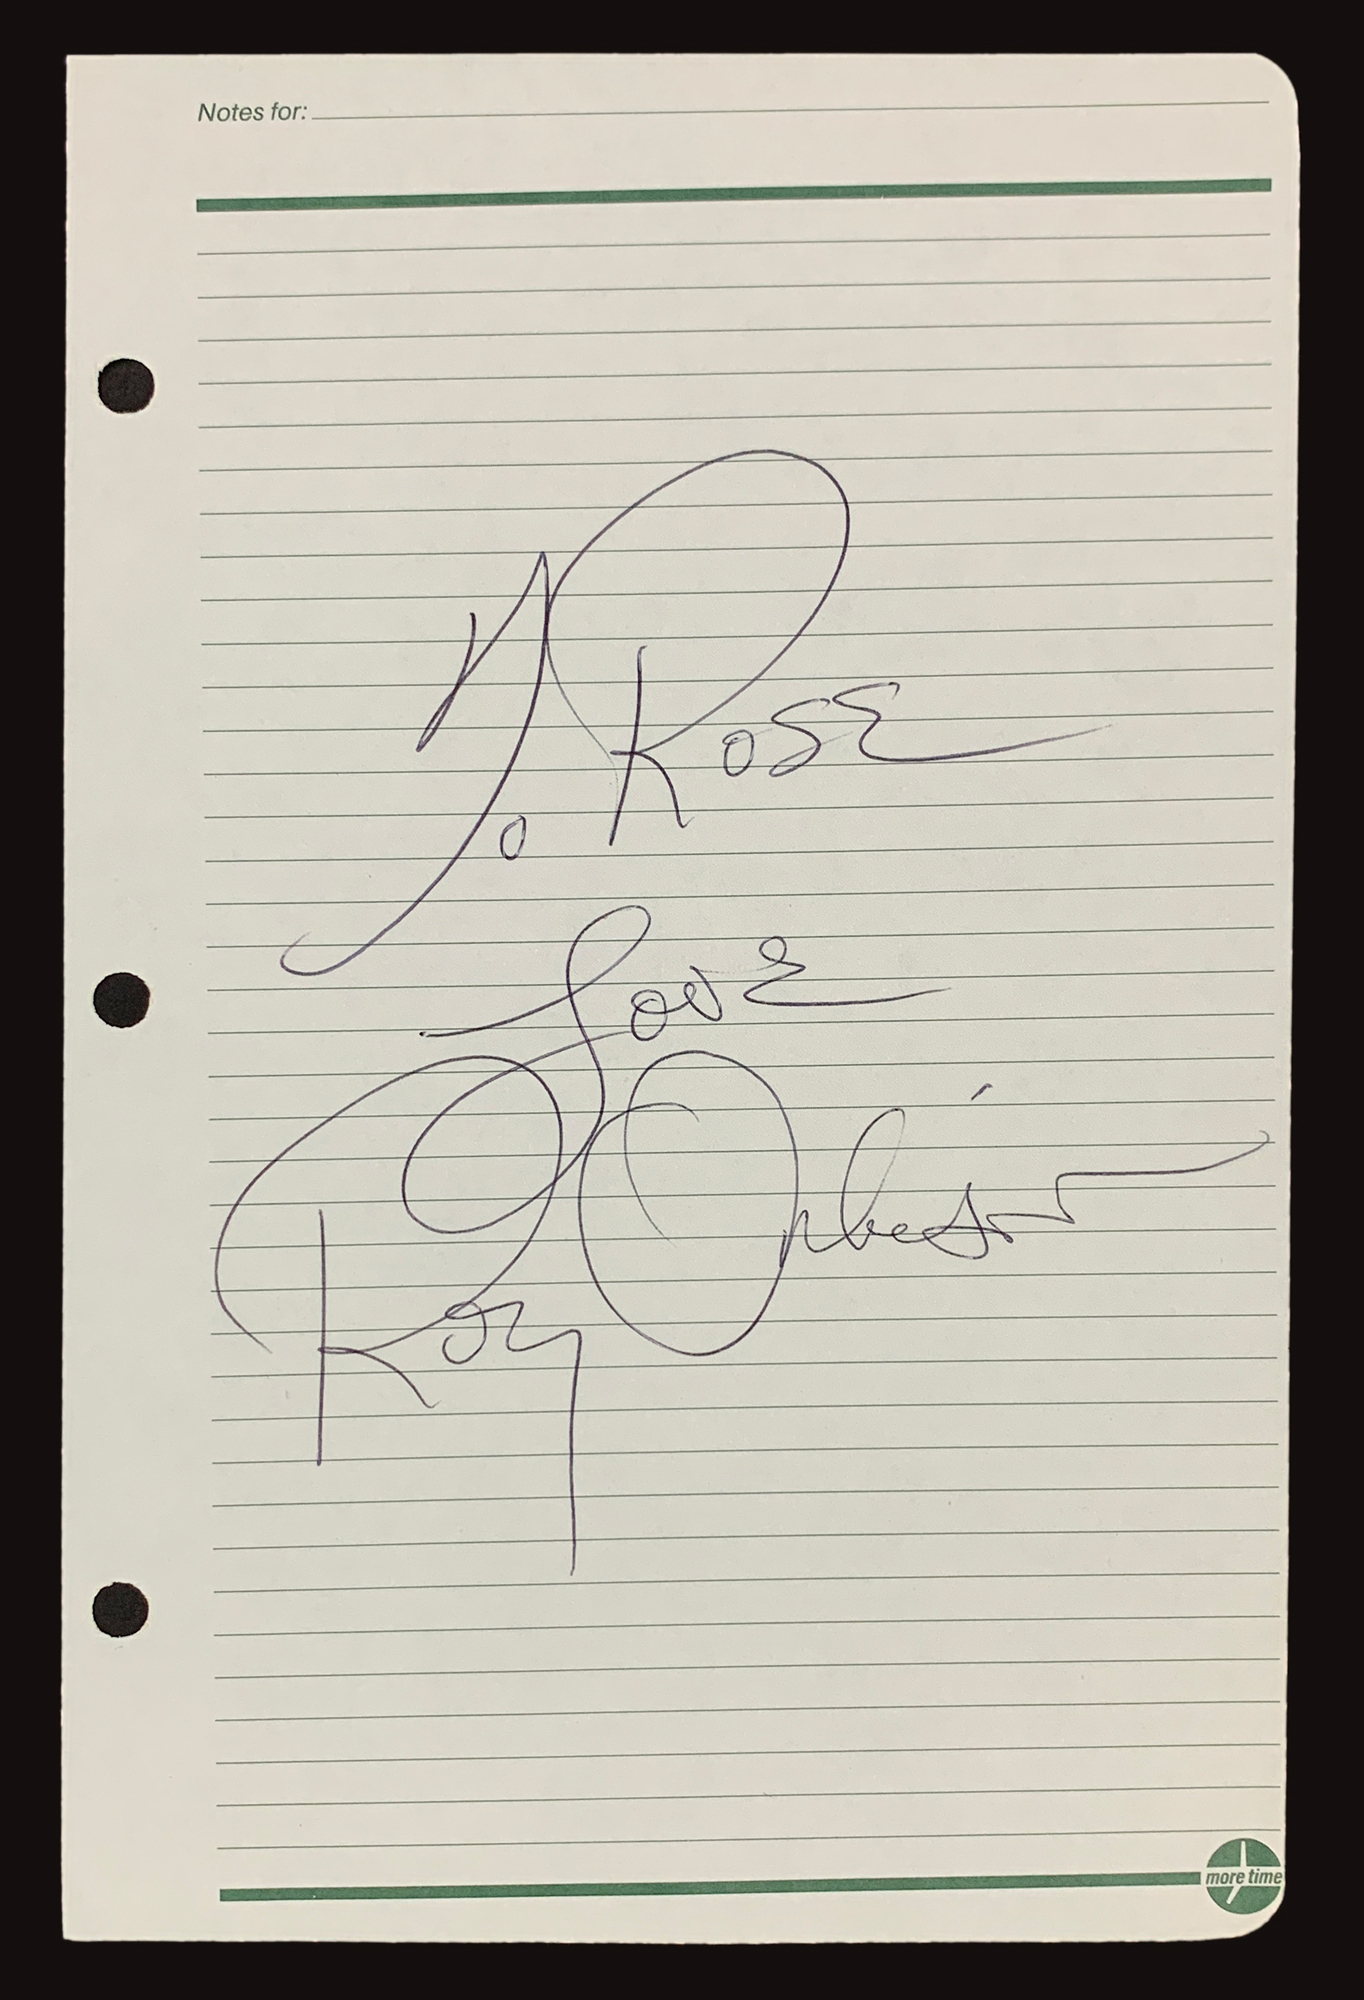 Notes for:
To Rose
Love
Roy Orbison
more time